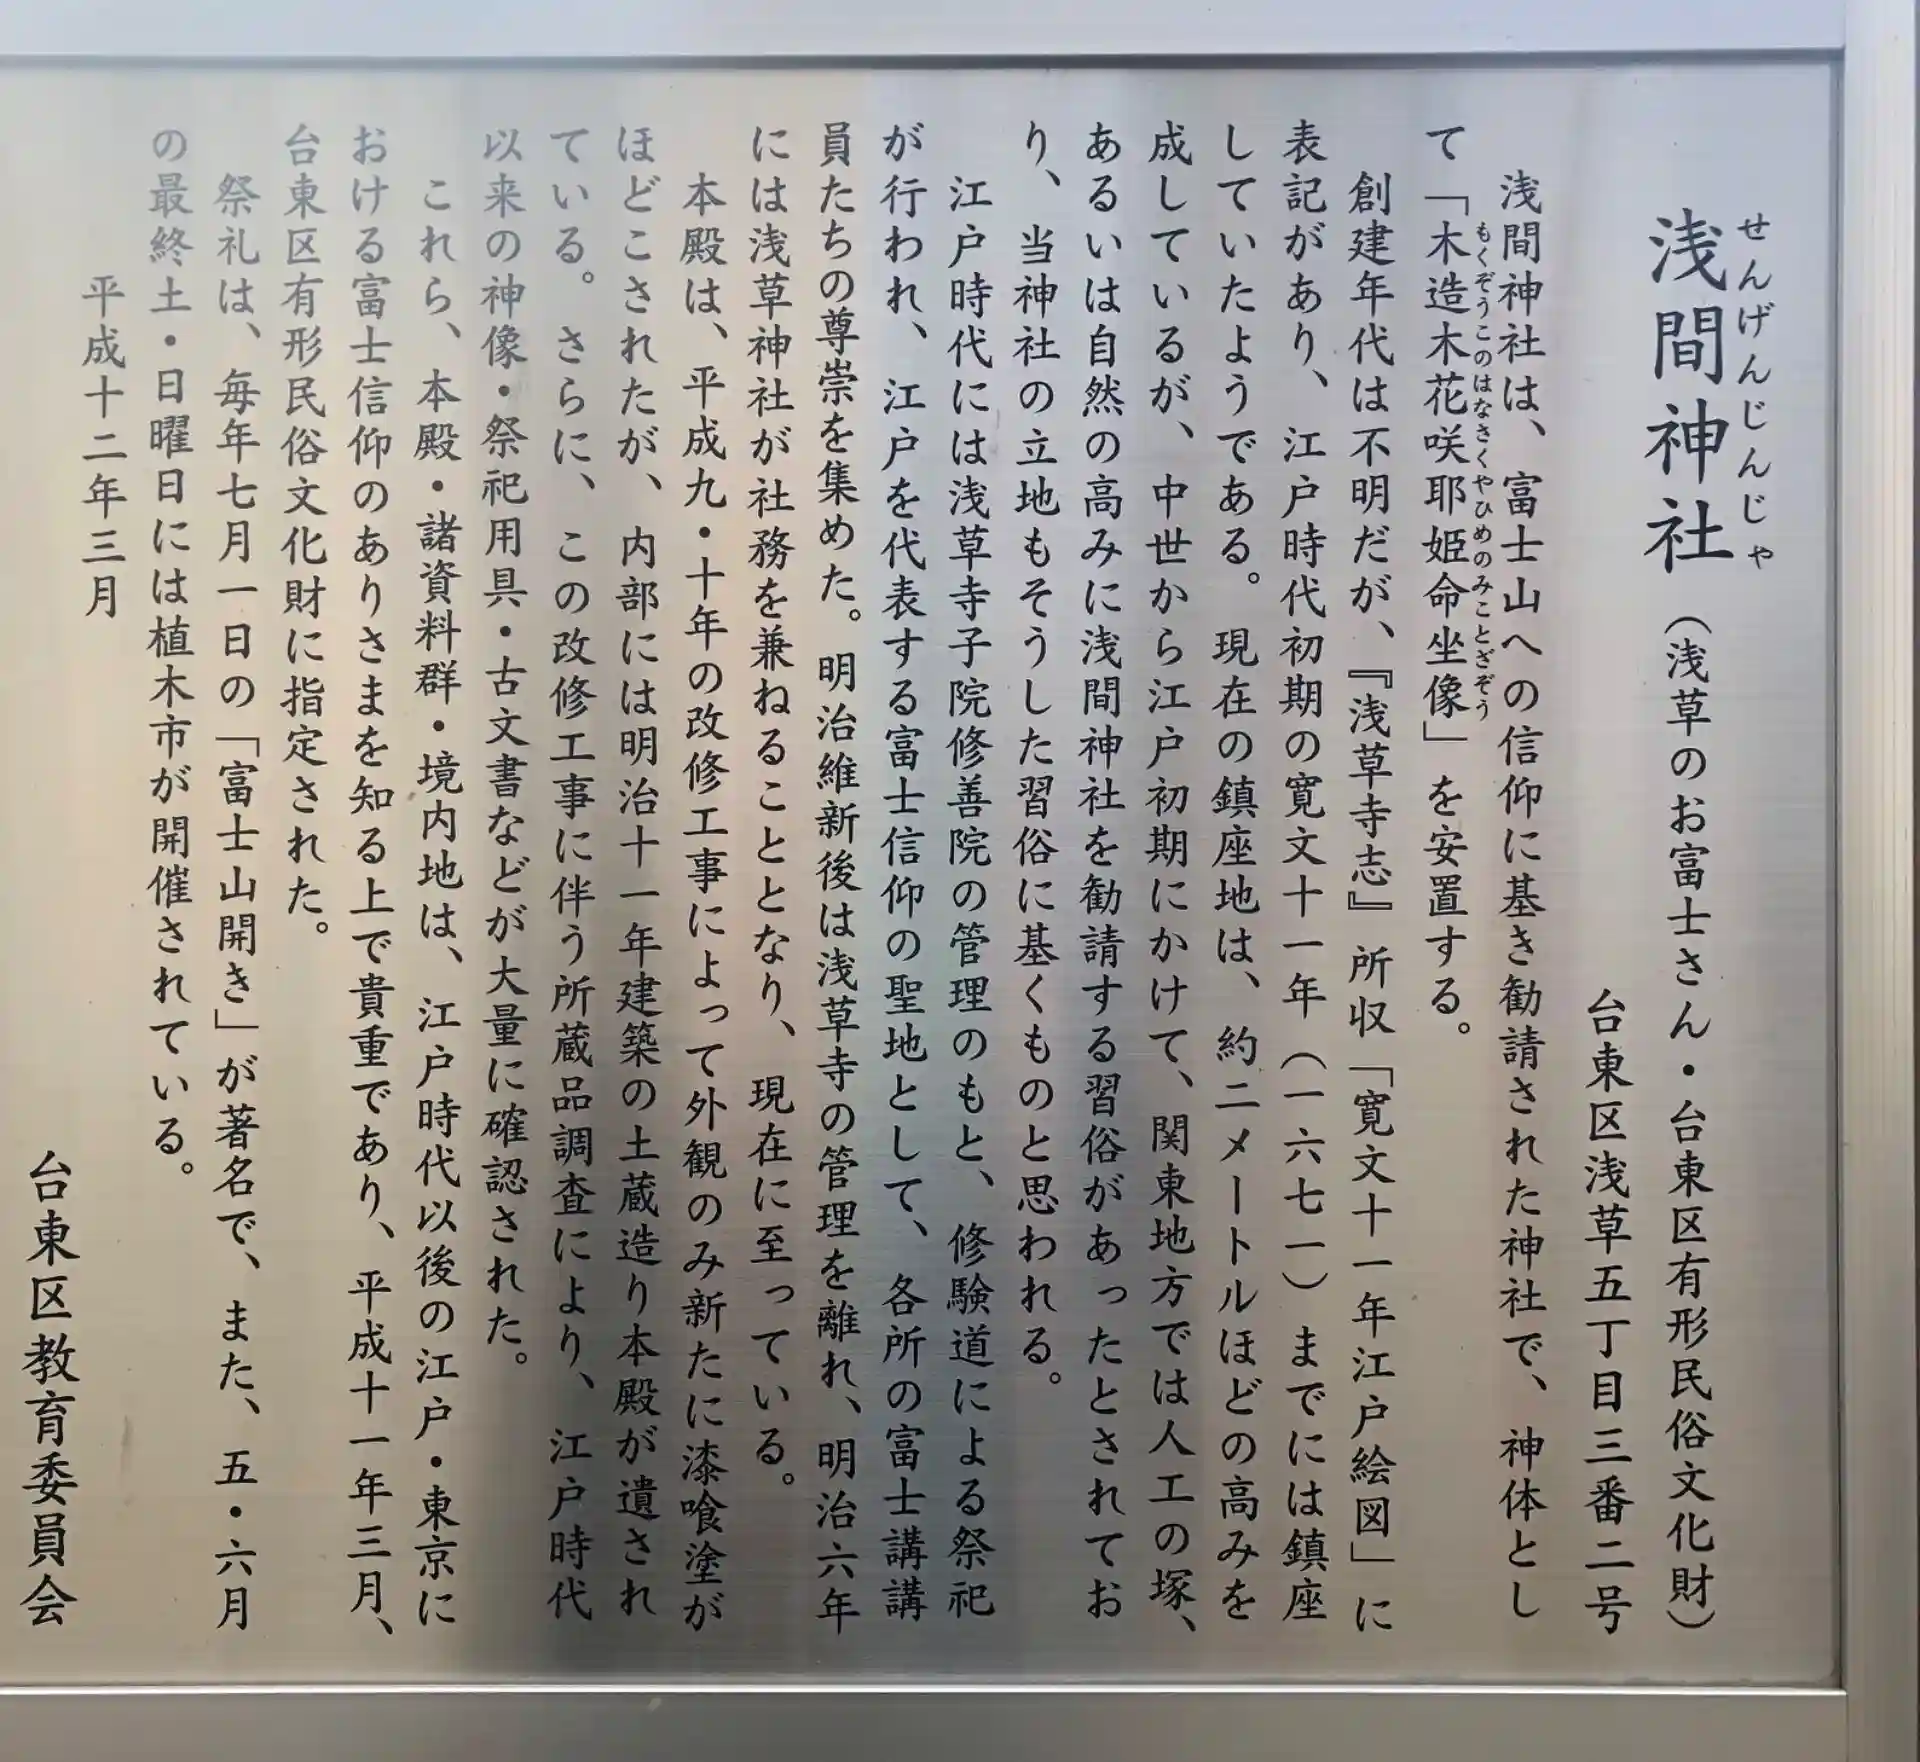 せんげんじんじゃ
浅間神社（浅草のお富士さん・台東区有形民俗文化財）
台東区浅草五丁目三番二号
浅間神社は、富士山への信仰に基き勧請された神社で、神体とし
もくぞうこのはなさくやひめのみことざぞう
て「木造木花咲耶姫命坐像」を安置する。
創建年代は不明だが、『浅草寺志』所収「寛文十一年江戸絵図」に
表記があり、江戸時代初期の寛文十一年（一六七一）までには鎮座
していたようである。現在の鎮座地は、約二メートルほどの高みを
成しているが、中世から江戸初期にかけて、関東地方では人工の塚、
あるいは自然の高みに浅間神社を勧請する習俗があったとされてお
り、当神社の立地もそうした習俗に基くものと思われる。
江戸時代には浅草寺子院修善院の管理のもと、修験道による祭祀
が行われ、江戸を代表する富士信仰の聖地として、各所の富士講講
員たちの尊崇を集めた。明治維新後は浅草寺の管理を離れ、明治六年
には浅草神社が社務を兼ねることとなり、現在に至っている。
本殿は、平成九・十年の改修工事によって外観のみ新たに漆喰塗が
ほどこされたが、内部には明治十一年建築の土蔵造り本殿が遺され
ている。さらに、この改修工事に伴う所蔵品調査により、江戸時代
以来の神像・祭祀用具・古文書などが大量に確認された。
これら、本殿・諸資料群・境内地は、江戸時代以後の江戸・東京に
おける富士信仰のありさまを知る上で貴重であり、平成十一年三月、
台東区有形民俗文化財に指定された。
祭礼は、毎年七月一日の「富士山開き」が著名で、また、五・六月
の最終土・日曜日には植木市が開催されている。
平成十二年三月
台東区教育委員会